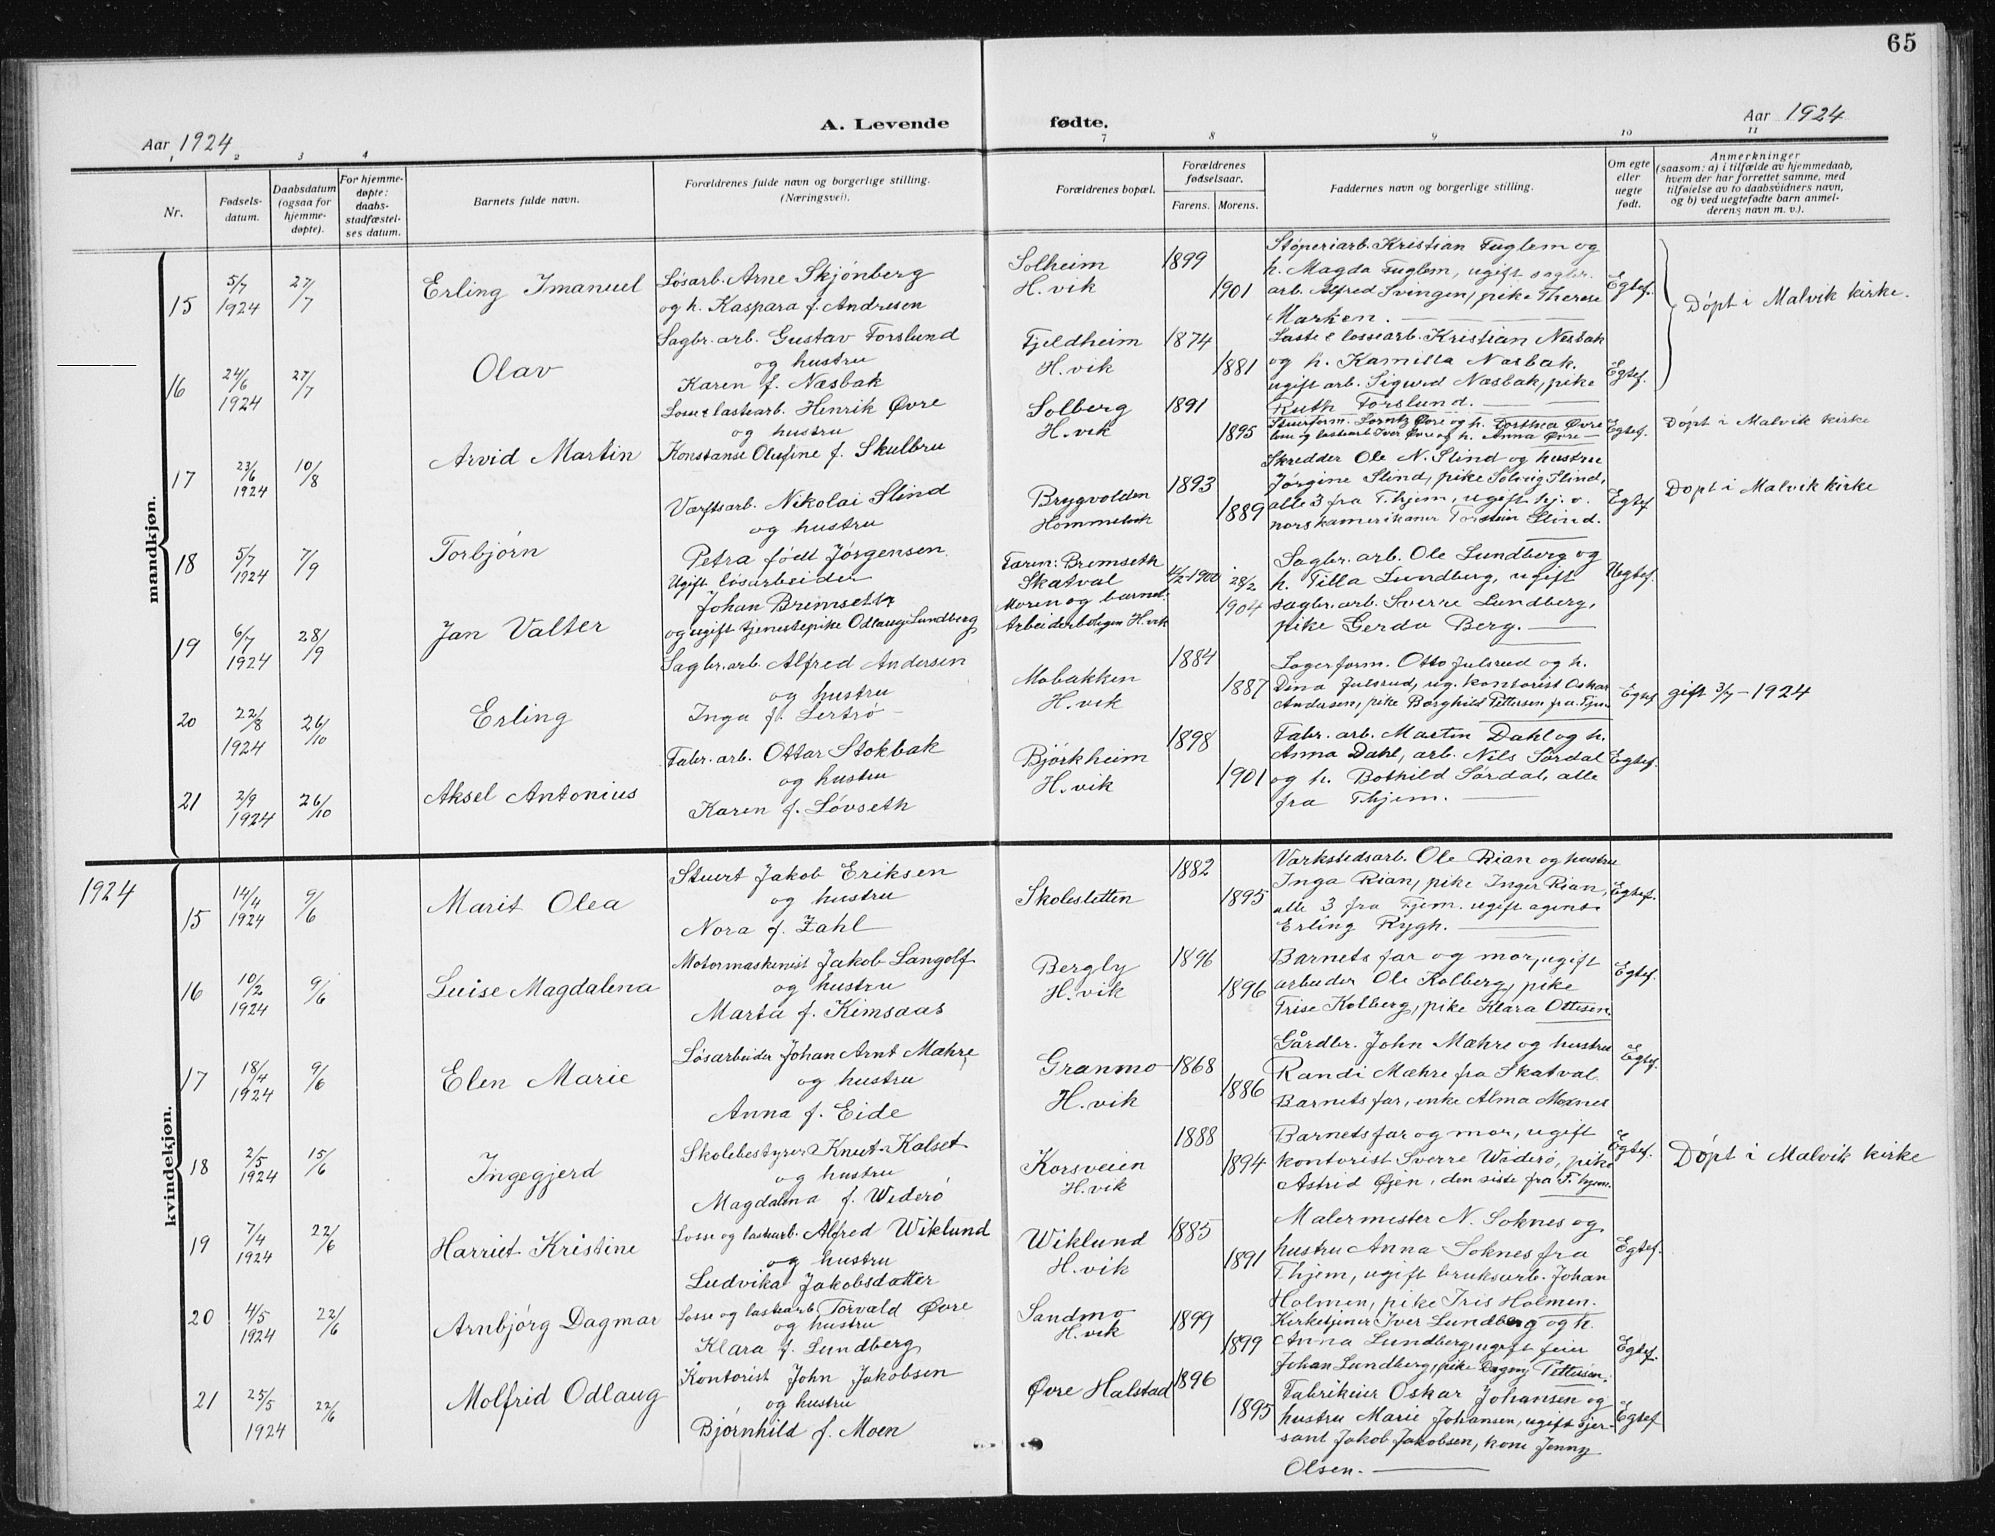 65
A. Levende fødte.
Aar 1924
Aar 1924
1 2 3 4 7 8 9 10 11
Nr.
Fødsels-
datum.
Daabsdatum
(ogsaa for
hjemme-
døpte).
For hjemme-
døpte:
daabs-
stadfæstel-
ses datum.
Barnets fulde navn.
Forældrenes fulde navn og borgerlige stilling.
(Næringsvei).
Forældrenes bopæl.
Forældrenes
fødselsaar.
Farens. Morens.
Faddernes navn og borgerlige stilling.
Om egte
eller
uegte
født.
Anmerkninger
(saasom: a) i tilfælde av hjemmedaab,
hvem der har forrettet samme, med
tilføielse av to daabsvidners navn,
og b) ved uegtefødte barn anmel-
derens navn m. v.).
mandkjøn.
15
5/7
1924
27/7
Erling Imanuel
Løsarb. Arne Skjønberg
og h. Kaspara f. Andresen
Solheim
H.vik
1899
1901
Støperiarb. Kristian Fuglem og
h. Magda Fuglem, ugift sagbr.
arb. Alfred Svingen, pike Therese
Marken.
Egtef.
Døpt i Malvik kirke.
16
24/6
1924
27/7
Olav
Sagbr. arb. Gustav Forslund
og hustru
Karen f. Næsbak
Fjeldheim
H.vik
1874
1881
Laste & lossearb. Kristian Næsbak
og h. Kamilla Næsbak.
ugift arb. Sigurd Næsbak, pike
Ruth Forslund.
Egtef.
17
23/6
1924
10/8
Arvid Martin
Losse & lastearb. Henrik Øvre
og hustru
Konstanse Olufine f. Skulbru
Solberg
H.vik
1891
1895
Stuerform. Lorntz Øvre og h. Dorthea Øvre
losse og lastearb Iver Øvre og h. Anna Øvre
Egtef.
Døpt i Malvik kirke
18
5/7
1924
7/9
Torbjørn
Værftsarb. Nikolai Slind
og hustru
Petra født Jørgensen
Brygvolden
Hommelvik
1893
1889
Skredder Ole N. Slind og hustru
Jørgine Slind, pike Solveig Slind,
alle 3 fra T.hjem, ugift hj. v.
norskamerikaner Torstein Slind.
Egtef
Døpt i Malvik kirke
19
6/7
1924
28/9
Jan Valter
Ugift løsarbeider
Johan Bremseth
og ugift tjenestepike Odlaug Lundberg
Faren: Bremseth
Skatval
Moren og barnet:
Arbeiderboligen H.vik
1900
28/2
1904
Sagbr. arb. Ole Lundberg og
h. Tilla Lundberg, ugift
sagbr. arb. Sverre Lundberg,
pike Gerda Berg.
Uegtef.
20
22/8
1924
26/10
Erling
Sagbr. arb. Alfred Andersen
og hustru
Inga f. Lertrø
Mobakken
H.vik
1884
1887
Lagerform. Otto Julsrud og h.
Dina Julsrud, ug. kontorist Oskar
Andersen, pike Borghild Pettersen fra T.hjem
Egtef
gift 3/7 - 1924
21
2/9
1924
26/10
Aksel Antonius
Fabr. arb. Ottar Stokbak
og hustru
Karen f. Løvseth
Bjørkheim
H.vik
1898
1901
Fabr. arb. Martin Dahl og h.
Anna Dahl, arb. Nils Sørdal
og h. Bothild Sørdal, alle
fra T.hjem.
Egtef.
1924
kvindekjøn.
15
14/4
1924
9/6
Marit Olea
Stuert Jakob Eriksen
og hustru
Nora f. Zahl
Skolesletten
1882
1895
Værkstedsarb. Ole Rian og hustru
Inga Rian, pike Inger Rian,
alle 3 fra T.jem. ugift agent
Erling Rygh.
Egtef.
16
10/2
1924
9/6
Luise Magdalena
Motormaskinist Jakob Langolf
og hustru
Marta f. Kimsaas
Bergly
H.vik
1896
1896
Barnets far og mor, ugift
arbeider Ole Kolberg, pike
Trise Kolberg, pike Klara Ottesen.
Egtef.
17
18/4
1924
9/6
Elen Marie
Løsarbeider Johan Arnt Mæhre
og hustru
Anna f. Eide
Granmo
H.vik
1868
1886
Gårdbr. John Mæhre og hustru
Randi Mæhre fra Skatval
Barnets far, enke Alma Moxnes
Egtef.
18
2/5
1924
15/6
Ingegjerd
Skolebestyrer Knut Kalset
og hustru
Magdalena f. Widerø
Korsveien
H.vik
1888
1894
Barnets far og mor, ugift
kontorist Sverre Widerø, pike
Astrid Øien, den siste fra T.hjem.
Egtef.
Døpt i Malvik kirke
19
7/4
1924
22/6
Harriet Kristine
Losse og lastearb. Alfred Wiklund
og hustru
Ludvika Jakobsdatter
Wiklund
H.vik
1885
1891
Malermester N. Soknes og
hustru Anna Soknes fra
T.hjem, ugift bruksarb. Johan
Holmen, pike Iris Holmen.
Egtef.
20
4/5
1924
22/6
Arnbjørg Dagmar
Losse og lastearb Torvald Øvre
og hustru
Klara f. Lundberg
Sandmo
H.vik
1899
1899
Kirketjener Iver Lundberg og h.
Anna Lundberg, ugift feier
Johan Lundberg, pike Dagny Pettersen.
Egtef.
21
25/5
1924
22/6
Molfrid Odlaug
Kontorist John Jakobsen
og hustru
Bjørnhild f. Moen
Øvre Halstad
1896
1895
Fabrikeier Oskar Johansen og
hustru Marie Johansen, ugift sjer-
sant Jakob Jakobsen, kone Jenny
Olsen.
Egtef